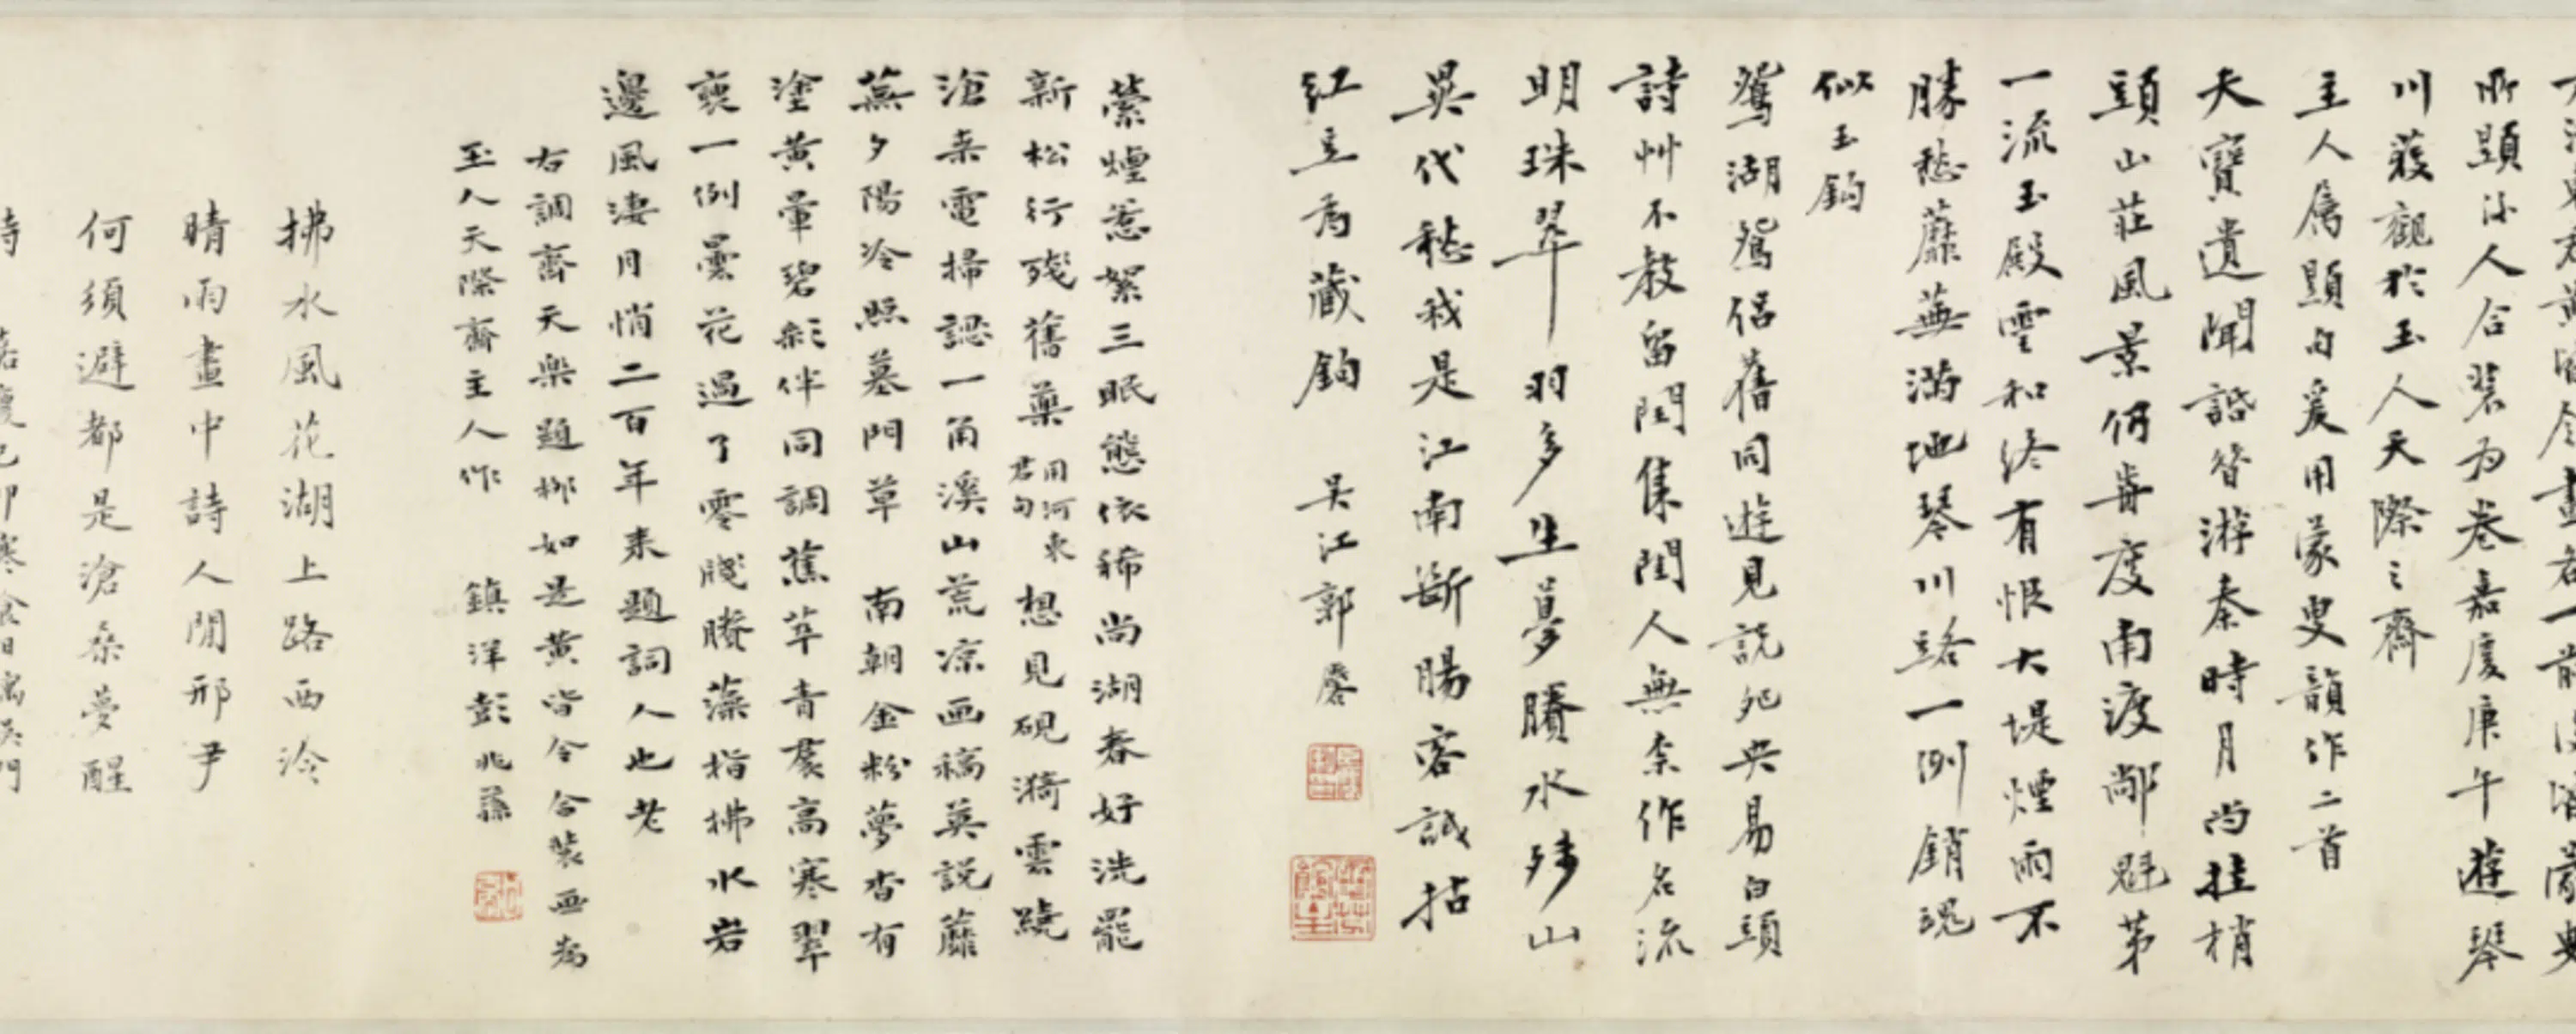 所題沁人合裝為卷嘉慶庚午遊琴
川獲觀於玉人天際之齋
主人屬題句爰用蒙叟韻作二首
天寶遺聞話昔游秦時月尚挂梢
頭山莊風景何昔度南渡鄰魁第
一流玉殿雲和終有恨大堤煙雨不
勝愁蘼蕪滿地琴川路一例銷魂
似玉鈎
鴛湖鴛侶舊同遊見說死央易白頭
詩艸不教留閏集閨人無柰作名流
明珠翠羽多生夢賸水殘山
異代愁我是江南斷腸客試拈
紅豆為藏鈎 吳江郭麐
縈煙惹絮三眠態依稀尚湖春好洗罷
新松行殘舊藥用河東君句想見硯漪雲曉
滄桑電掃認一角溪山荒涼画稿莫說蘼
蕪夕陽冷照墓門草 南朝金粉夢杳有
塗黃暈碧彩伴同調蕉萃青裠高寒翠
褏一例曇花過了零牋賸藻指拂水岩
邊風淒月悄二百年来題詞人也老
右調齊天樂題柳如是黃皆令合裝画為
玉人天際齋主人作 鎮洋彭兆蓀
拂水風花湖上路西泠
晴雨畫中詩人間邢尹
何須避都是滄桑夢醒
時 嘉慶己卯寒食日寓吳門